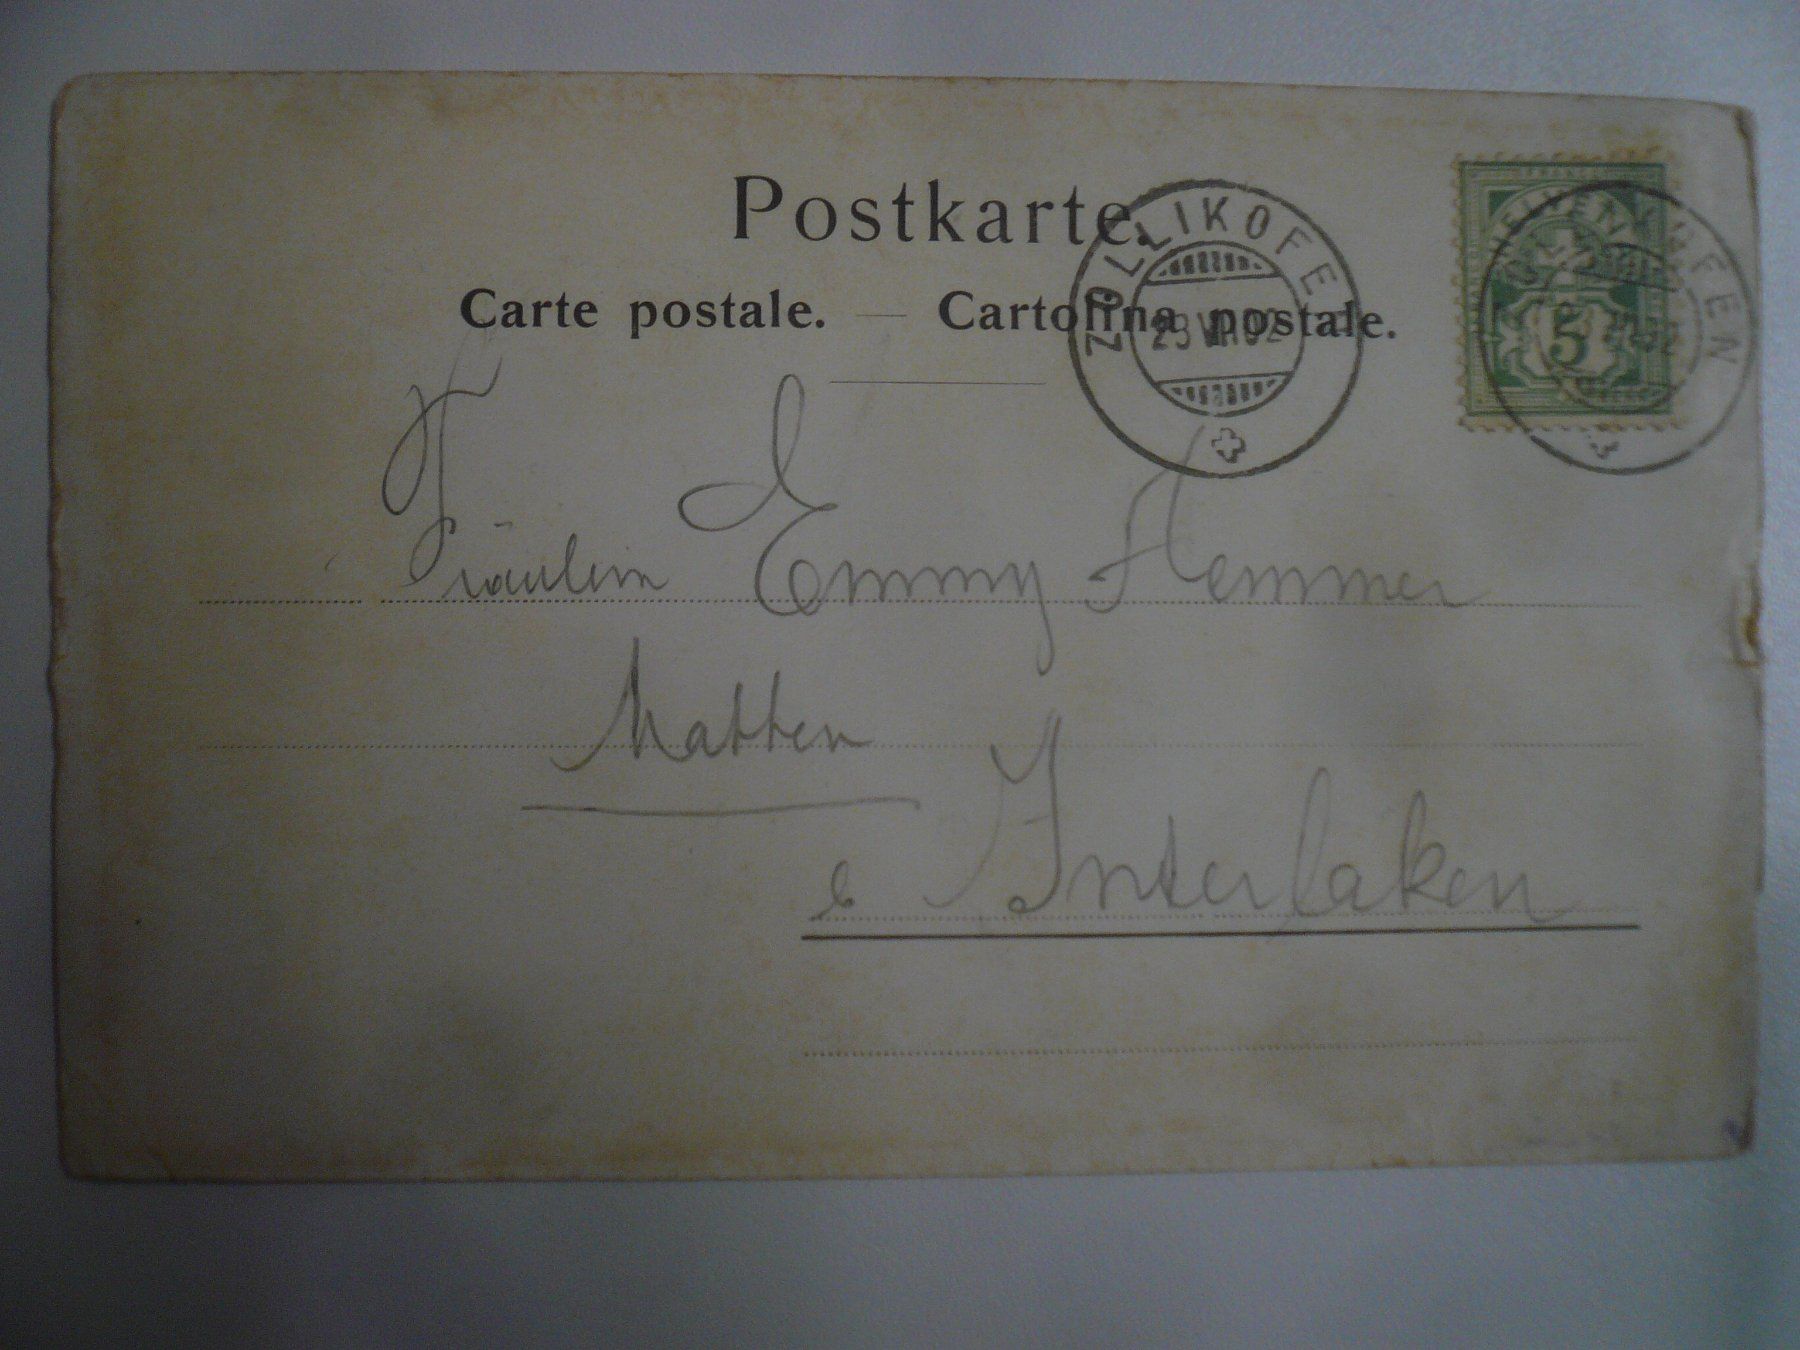 Postkarte.
Carte postale. — Cartolina postale.
ZOLLIKOFEN
23 VII 02
HELVETIA
5
Fräulein Emmy Hemmer
Matten
b Interlaken